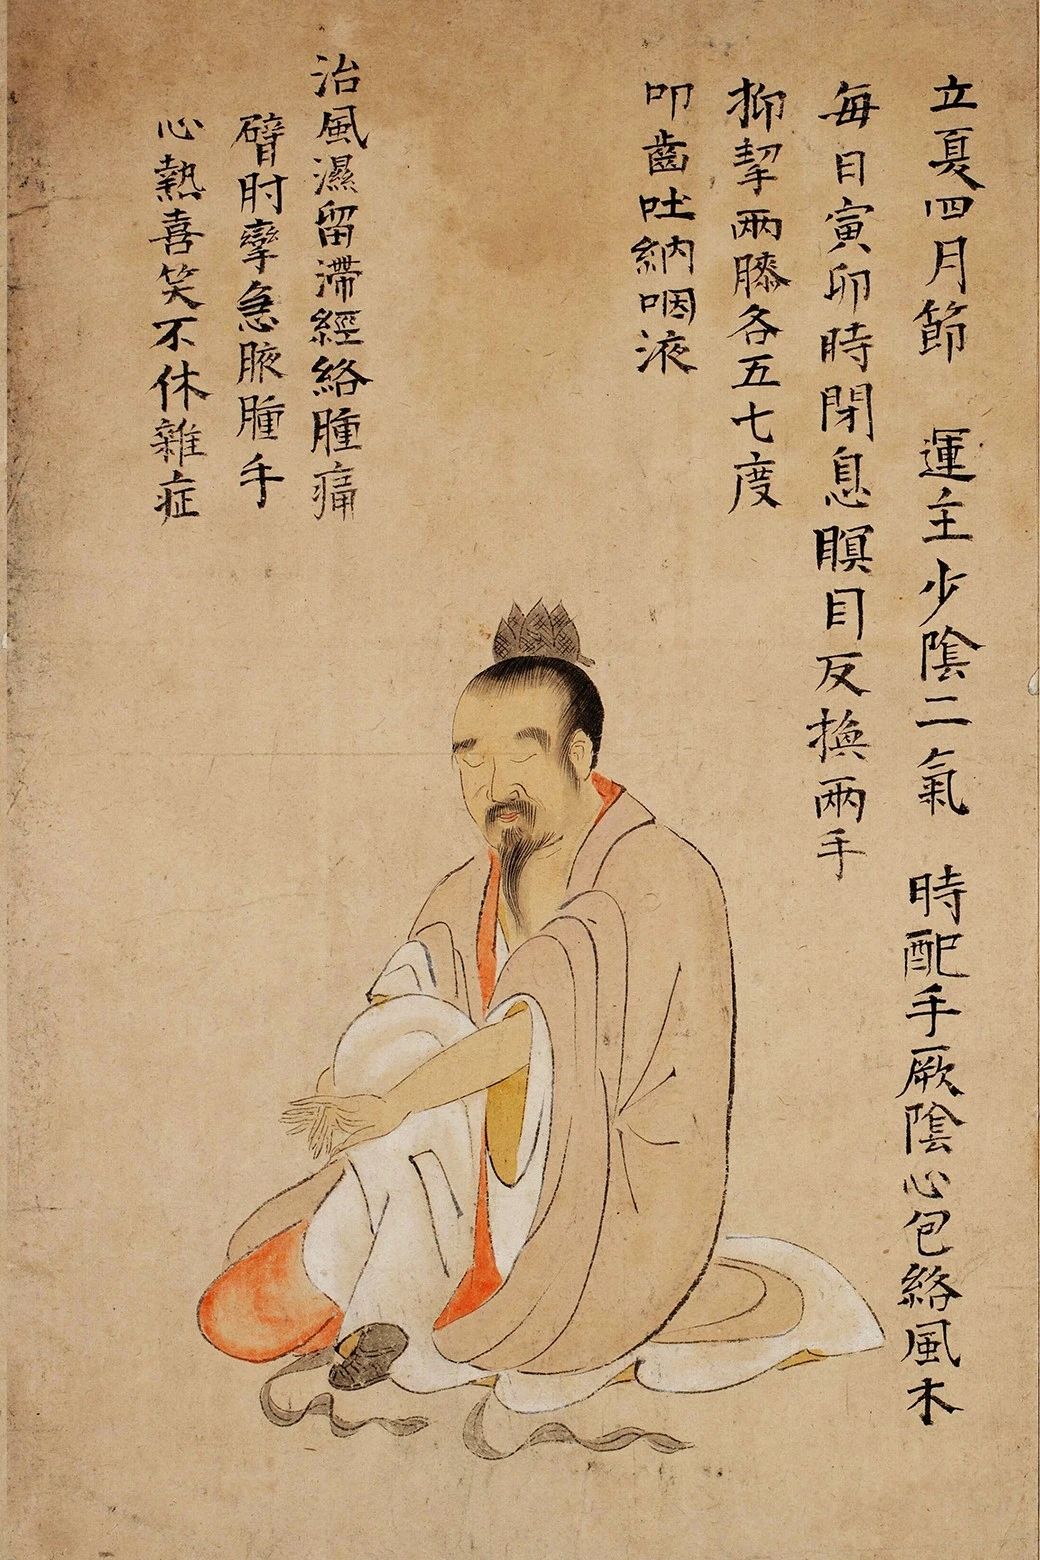 立夏四月節 運主少陰二氣 時配手厥陰心包絡風木
每日寅卯時閉息瞑目反換兩手
抑挈兩膝各五七度
叩齒吐納咽液
治風濕留滯經絡腫痛
臂肘攣急腋腫手
心熱喜笑不休雜症